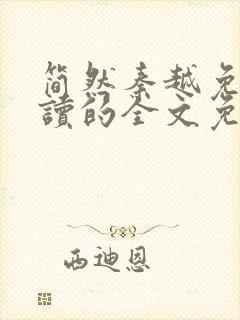 简然秦越免
讀的全文免
西迪恩